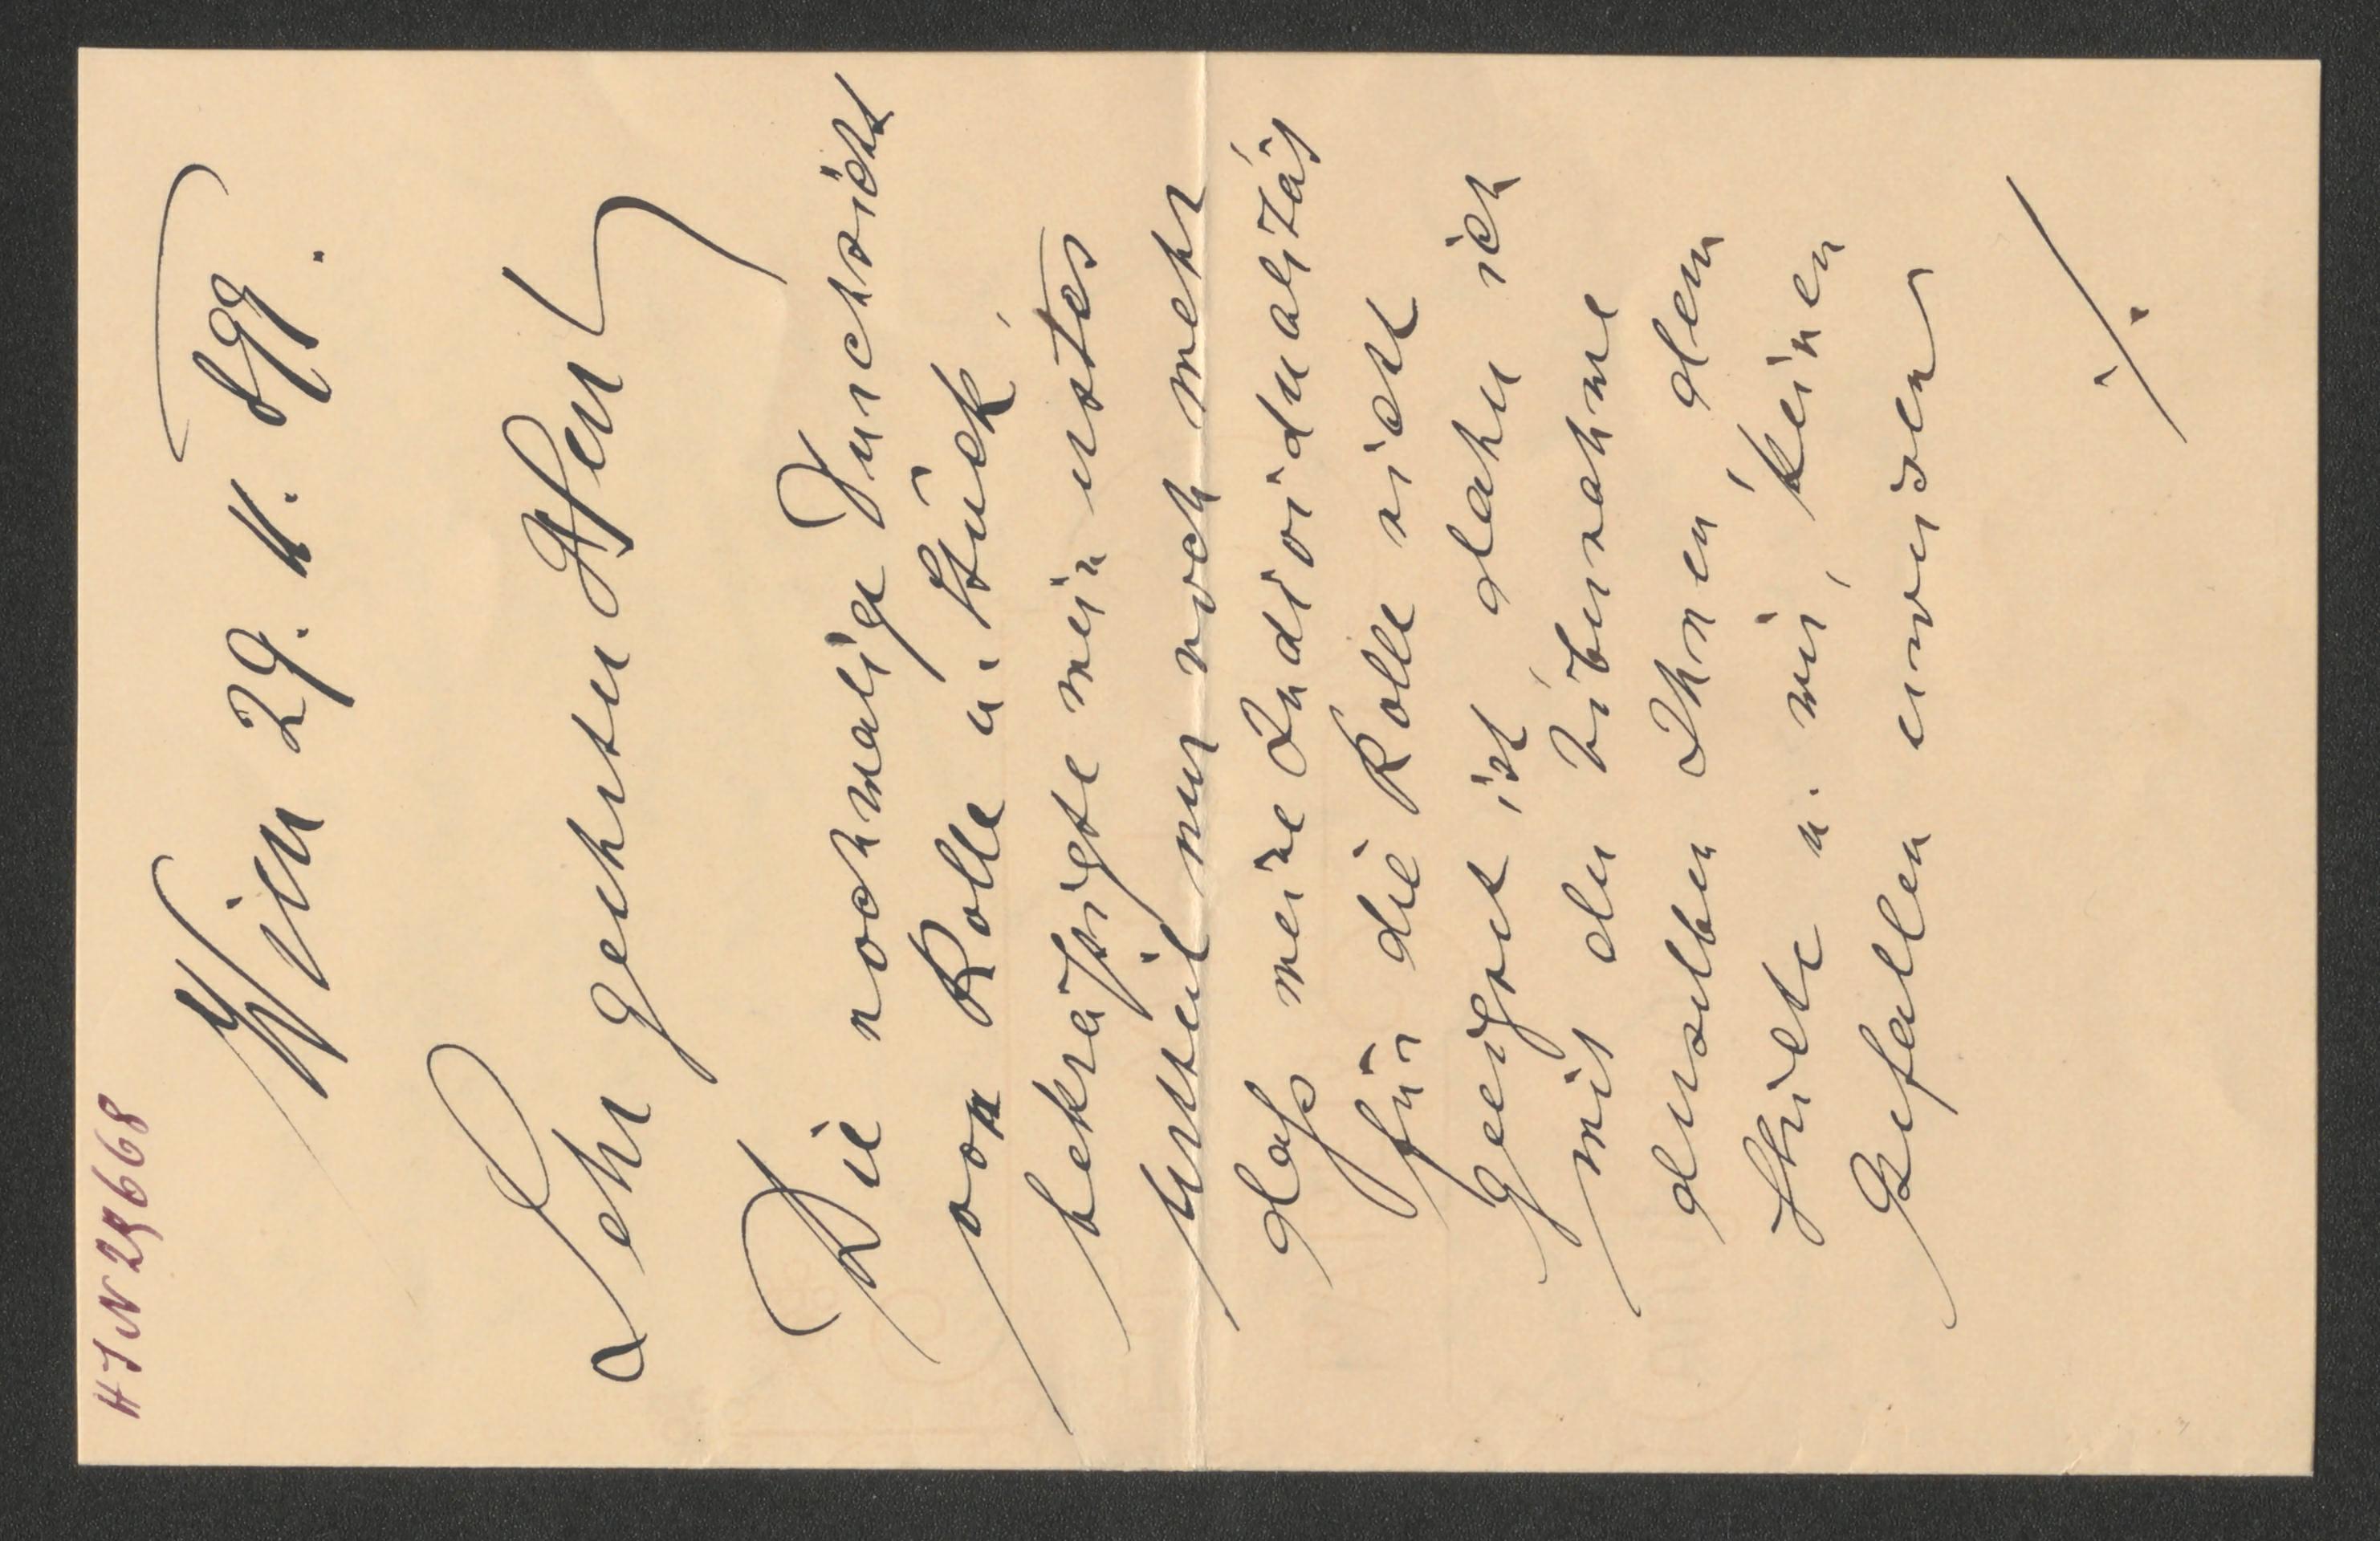 HIN 29668
Wien 29. 11. 899.
Sehr geehrter Herr!
Die nochmalige Durchsicht
von Rolle u. Stück,
bekräftigte mein erstes
Urteil nur noch mehr
daß meine Individualität
für die Rolle nicht
geeignet ist, daher ich
mit der Übernahme
derselben Ihnen, dem
Stücke u. mir, keinen
Gefallen erweisen
./.